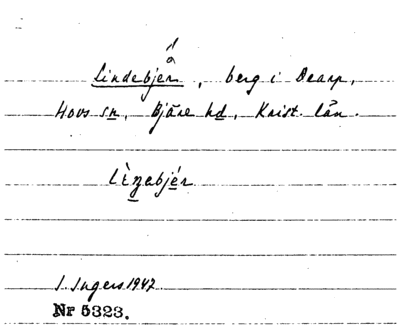 å
Lindebjer, berg i Dearp,
Hovs sn, Bjäre hd, Krist. län.
lèṉebjér
I. Ingers 1947
Nr 5323.